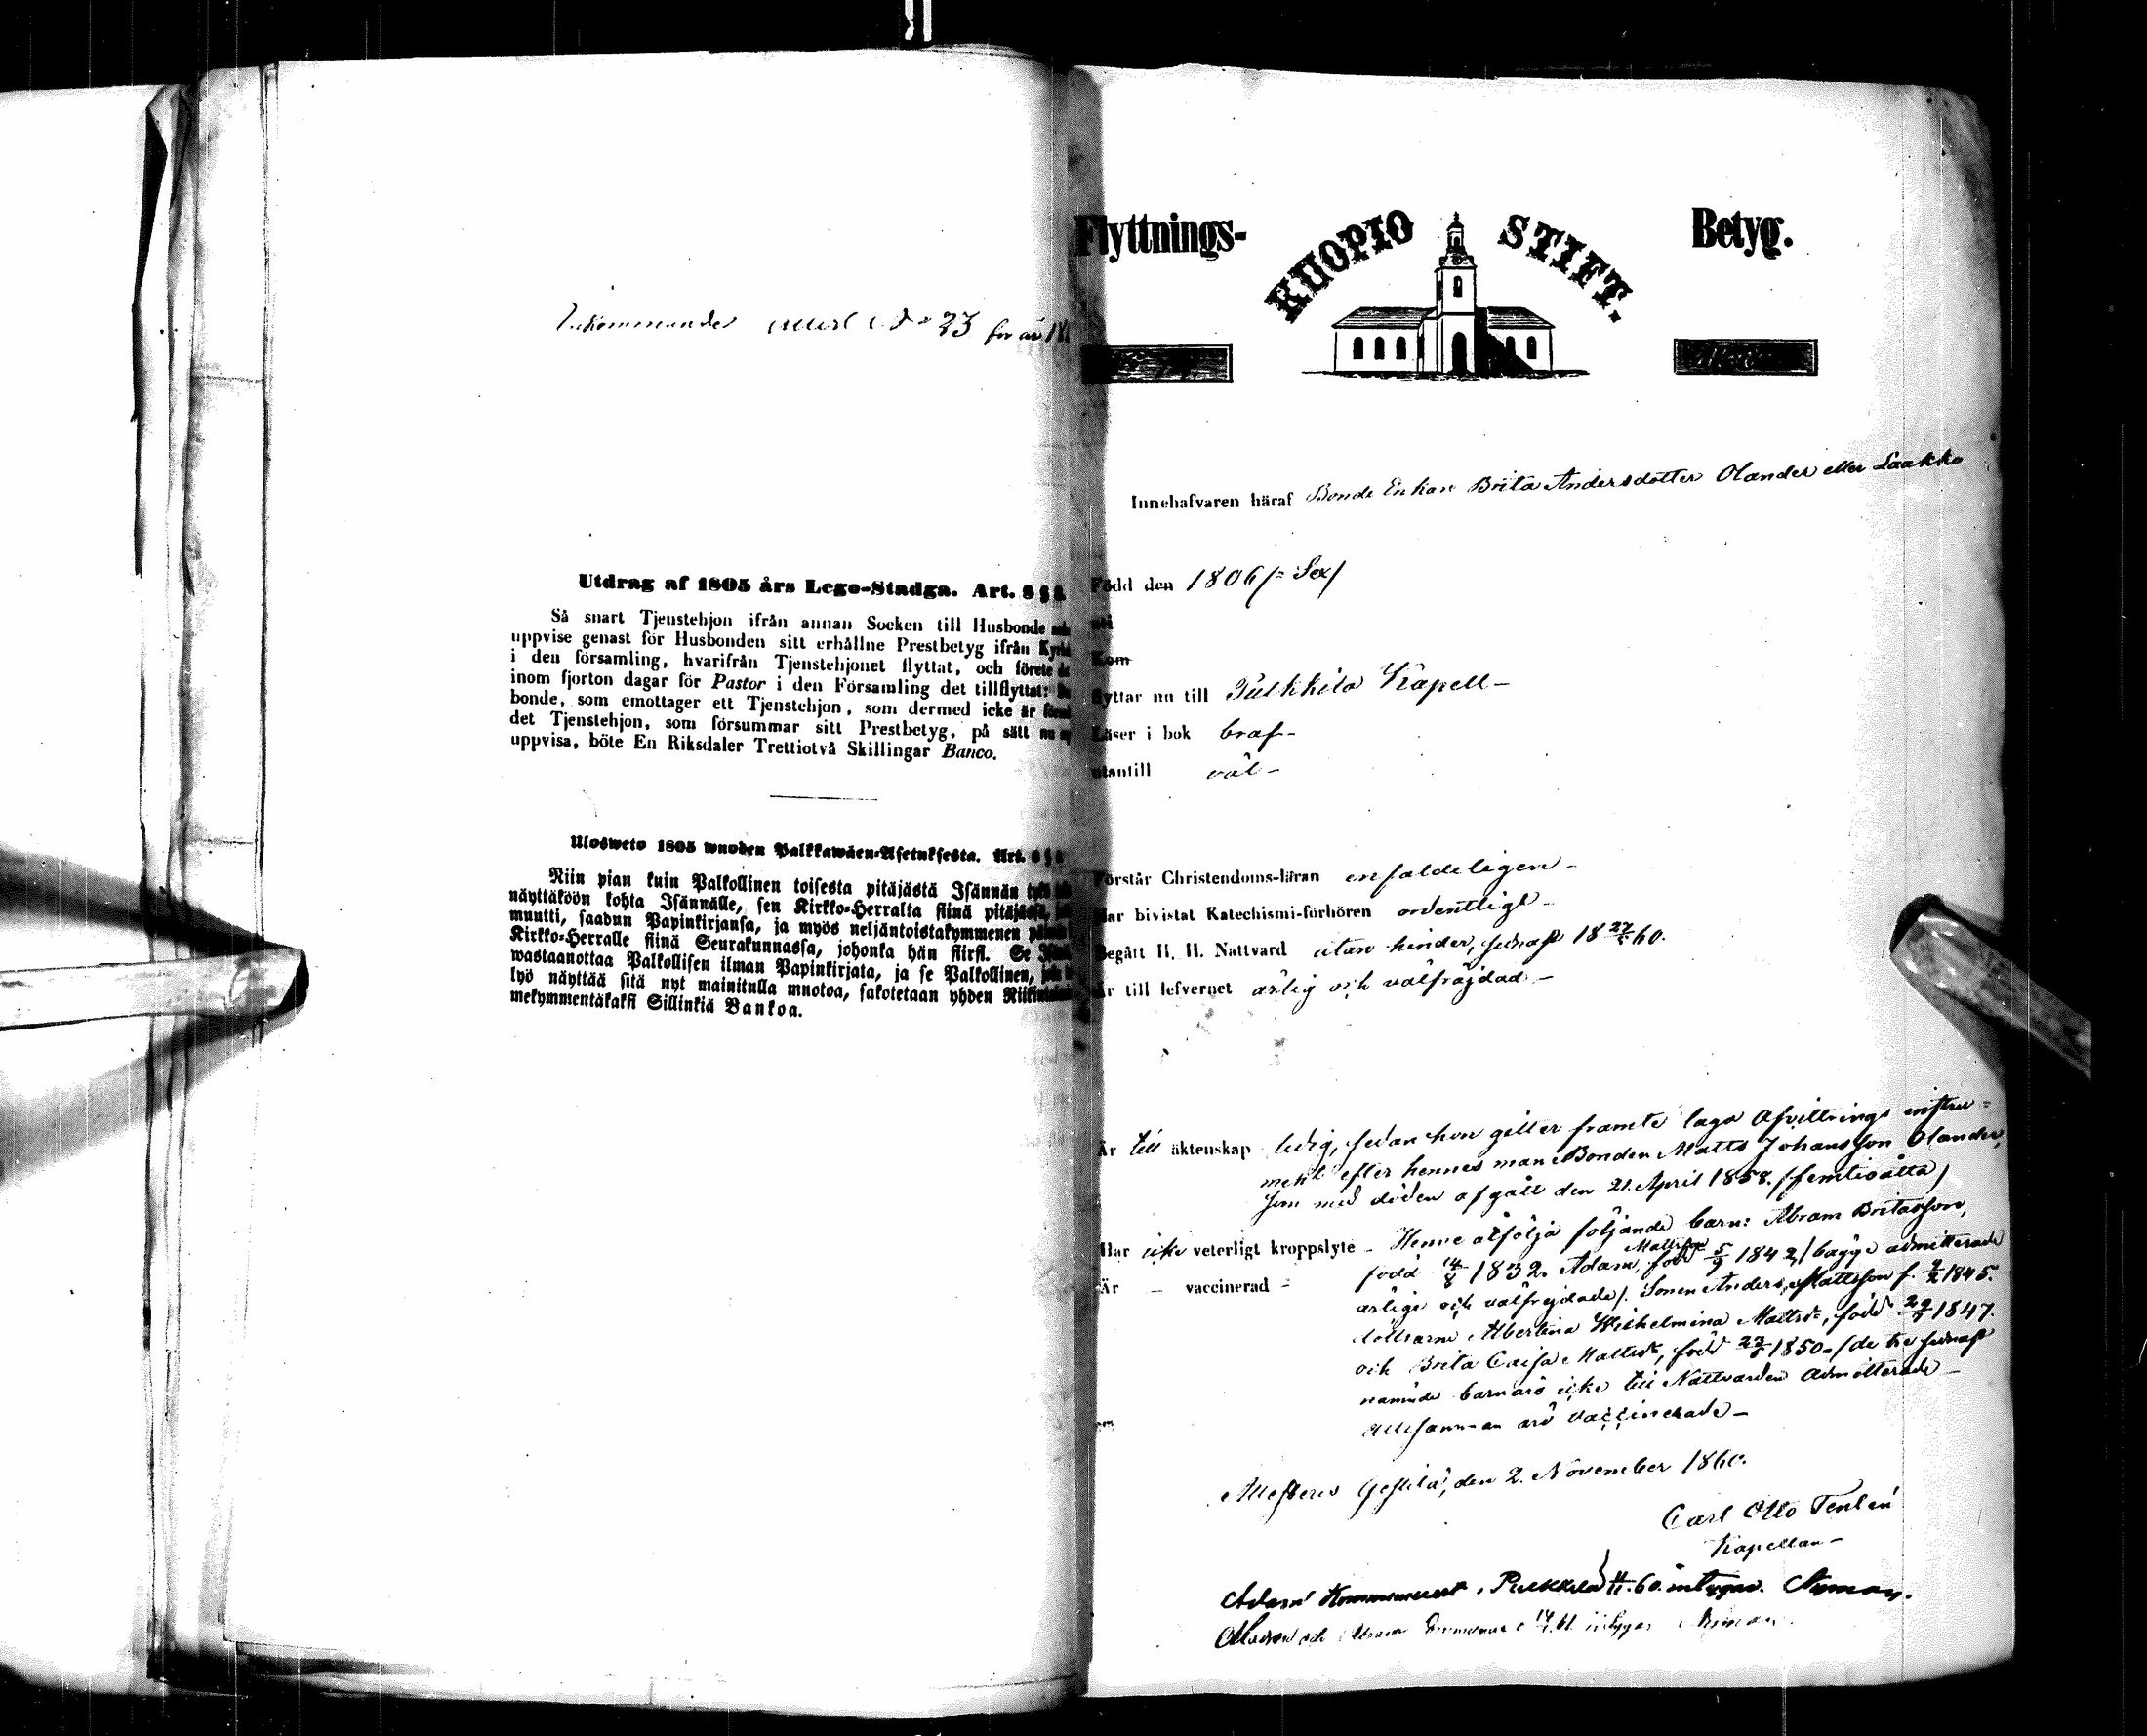 Inkommande attest No 23 för år
Utdrag af 1805 års Lego-Stadga. Art. 8 §
Så snart Tjenstehjon ifrån annan Socken till Husbonde
uppvise genast för Husbonden sitt erhållne Prestbetyg ifrån
i den församling, hvarifrån Tjenstehjonet flyttat, och förete
inom fjorton dagar för Pastor i den Församling det tillflyttat:
bonde, som emottager ett Tjenstehjon, som dermed icke är
det Tjenstehjon, som försummar sitt Prestbetyg, på sätt nu
uppvisa, böte En Riksdaler Trettiotvå Skillingar Banco.
Ulosweto 1805 wuoden Palkkawäen-Asetuksesta. Art.
Niin pian kuin Palkollinen toisesta pitäjästä Isännän
näyttäköön kohta Isännälle, sen Kirkko-Herralta siinä
muutti, saadun Papinkirjansa, ja myös neljäntoistakymmenen
Kirkko-Herralle siinä Seurakunnassa, johonka hän siirsi. Se
wastaanottaa Palkollisen ilman Papinkirjata, ja se Palkollinen,
lyö näyttää sitä nyt mainitulla muotoa, sakotetaan yhden
mekymmentäkaksi Sillinkiä Bankoa.
Flyttnings- KUOPIO STIFT. Betyg.
Innehafvaren häraf Bonde Enkan Brita Andersdotter Olander eller Laakko
Född den 1806 /= Sex/
Kom
flyttar nu till Pulkkila Kapell –
Läser i bok braf –
utantill väl –
Förstår Christendoms-läran enfaldeligen –
Har bivistat Katechismi-förhören ordentligt –
Begått H. H. Nattvard utan hinder, sednast 18 60.
Är till lefvernet ärlig och välfräjdad –
Är till äktenskap ledig, sedan hon gitter framte laga Afvittrings instru=
ment efter hennes man Bonden Matts Johansson Olander,
som med döden afgått den 21. April 1858. /femtioåtta/
Har icke veterligt kroppslyte – Henne åtfölja följande barn: Abram Britasson,
Mattsson
Är – vaccinerad – född 14/8 1832. Adam, född 5/9 1842, /bägge admitterade
ärlige och välfrejdade/. Sonen Anders Mattsson f. 1845.
döttrarne Albertina Wilhelmina Mattsdr, född 1847.
och Brita Caisa Mattsdr, född 1850 – /de tre sednast
nämnde barn äro icke till Nattvarden admitterade –
allesamman äro vaccinerade –
Attesteras Gestilä, den 2. November 1860.
Carl Otto Tenlén
Kapellan –
Adam Kommunicerat i Pulkkila 60. intygar Nyman.
och Abram 61 intygar Nyman.